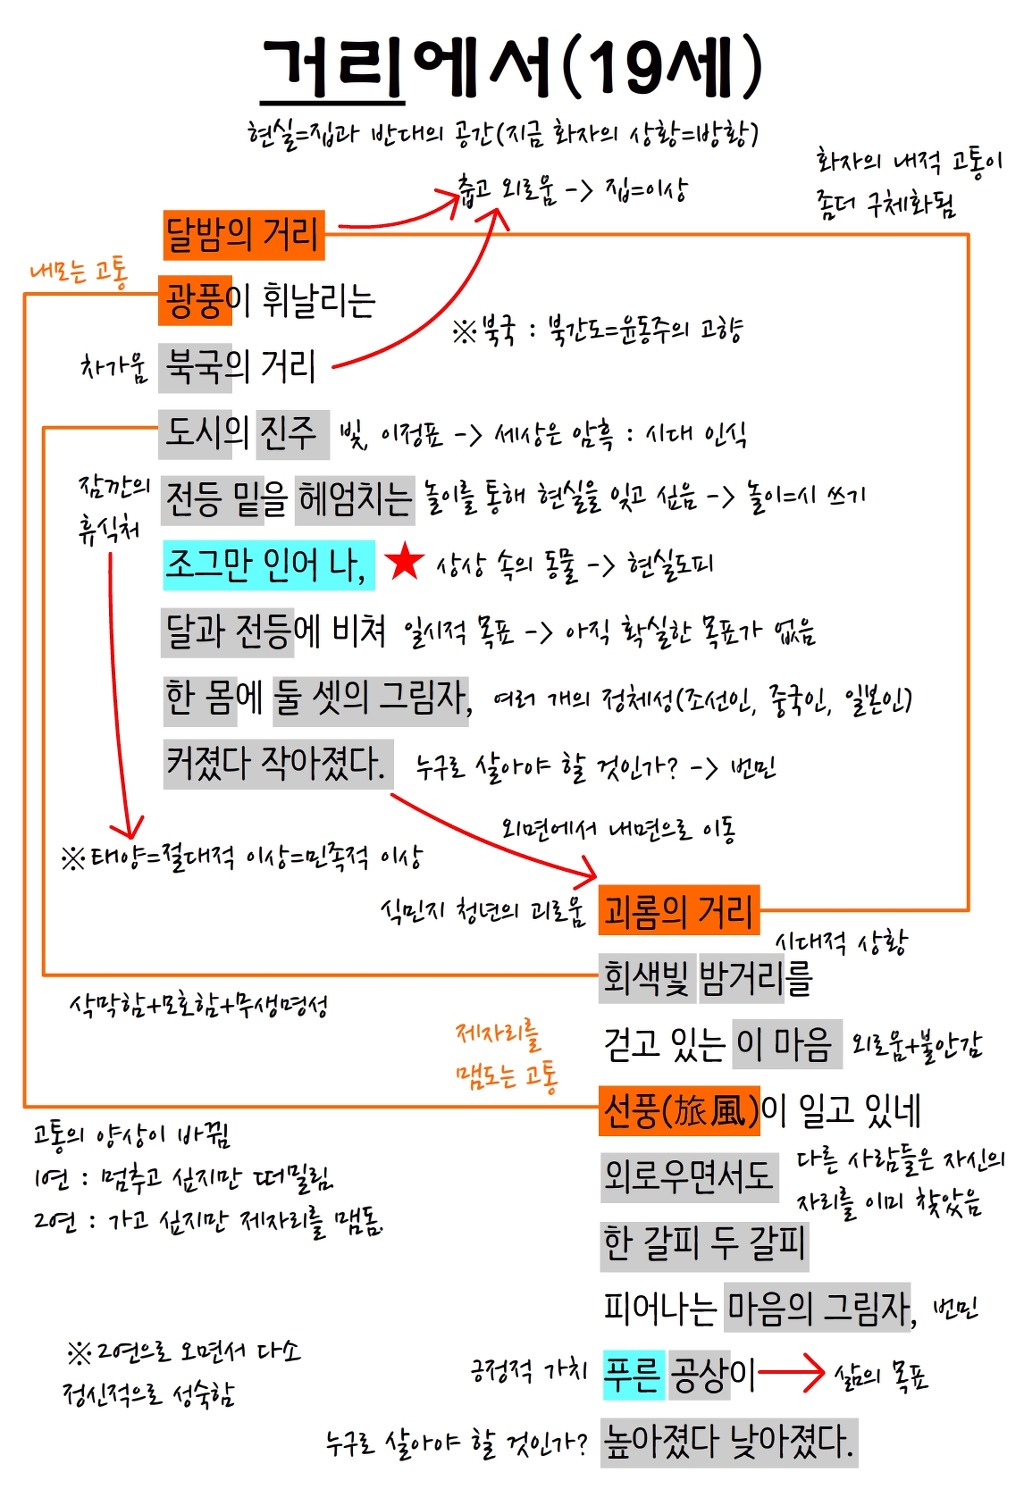 거리에서(19세)
현실=집과 반대의 공간(지금 화자의 상황=방황)
화자의 내적 고통이
좀더 구체화됨
춥고 외로움 -> 집=이상
달밤의 거리
내모는 고통
광풍이 휘날리는
※북국 : 북간도=윤동주의 고향
차가움 북국의 거리
도시의 진주 빛, 이정표 -> 세상은 암흑 : 시대 인식
잠깐의
휴식처
전등 밑을 헤엄치는 놀이를 통해 현실을 잊고 싶음 -> 놀이=시 쓰기
조그만 인어 나, ★ 상상 속의 동물 -> 현실도피
달과 전등에 비쳐 일시적 목표 -> 아직 확실한 목표가 없음
한 몸에 둘 셋의 그림자, 여러 개의 정체성(조선인, 중국인, 일본인)
커졌다 작아졌다. 누구로 살아야 할 것인가? -> 번민
외면에서 내면으로 이동
※태양=절대적 이상=민족적 이상
식민지 청년의 괴로움 괴롬의 거리
시대적 상황
회색빛 밤거리를
삭막함+모호함+무생명성
걷고 있는 이 마음 외로움+불안감
제자리를
맴도는 고통
선풍(旅風)이 일고 있네
고통의 양상이 바뀜
1연 : 멈추고 싶지만 떠밀림.
2연 : 가고 싶지만 제자리를 맴돔.
외로우면서도
다른 사람들은 자신의
자리를 이미 찾았음
한 갈피 두 갈피
피어나는 마음의 그림자, 번민
※2연으로 오면서 다소
정신적으로 성숙함
긍정적 가치 푸른 공상이 삶의 목표
누구로 살아야 할 것인가? 높아졌다 낮아졌다.